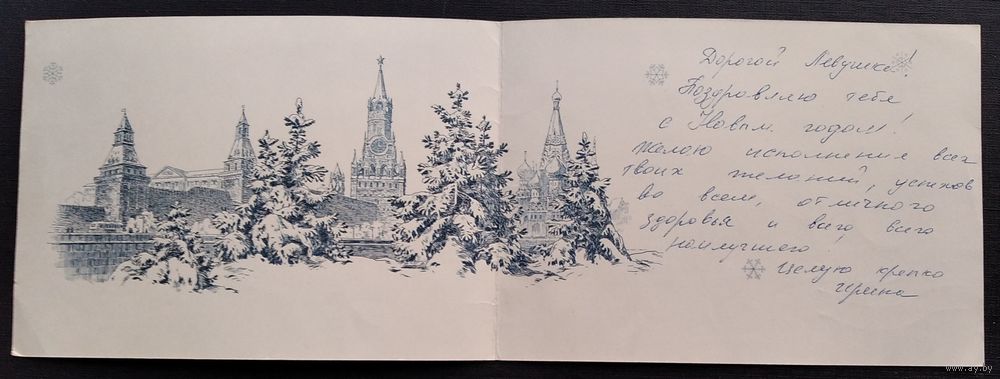 Дорогой Левушка!
Поздравляю тебя
с Новым годом!
Желаю исполнения всех
твоих желаний, успехов
во всем, отличного
здоровья и всего, всего
наилучшего!
Целую крепко
Ирина
www.ay.by